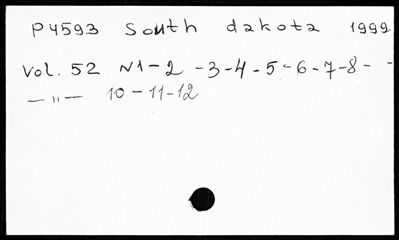 P4593 South dakota 1999
Vol. 52 N1-2 -3-4-5-6-7-8- -
— " — 10-11-12